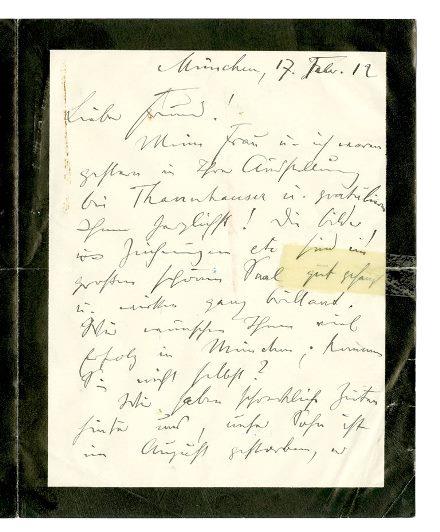 München, 17. Febr. 12
Lieber Freund!
Meine Frau u. ich waren
gestern in Ihrer Ausstellung
bei Thannhauser u. gratulieren
Ihnen herzlichst! Die Bilder,
Zeichnungen etc sind im
großen schönen Saal gut gehängt
u. wirken ganz brillant.
Wir wünschen Ihnen viel
Erfolg in München; kommen
Sie nicht selbst?
Wir haben schreckliche Zeiten
hinter uns, unser Sohn ist
im August gestorben, er